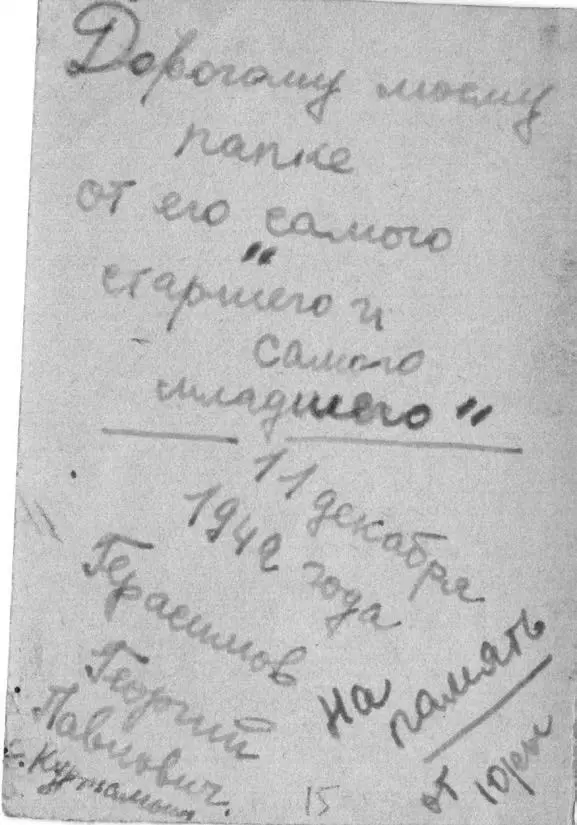 Дорогому моему
папке
от его самого
"
старшего и
самого
младшего"
11 декабря
1942 года
Герасимов
Георгий
Павлович.
с. Куртамыш
На
память
от Юры
15